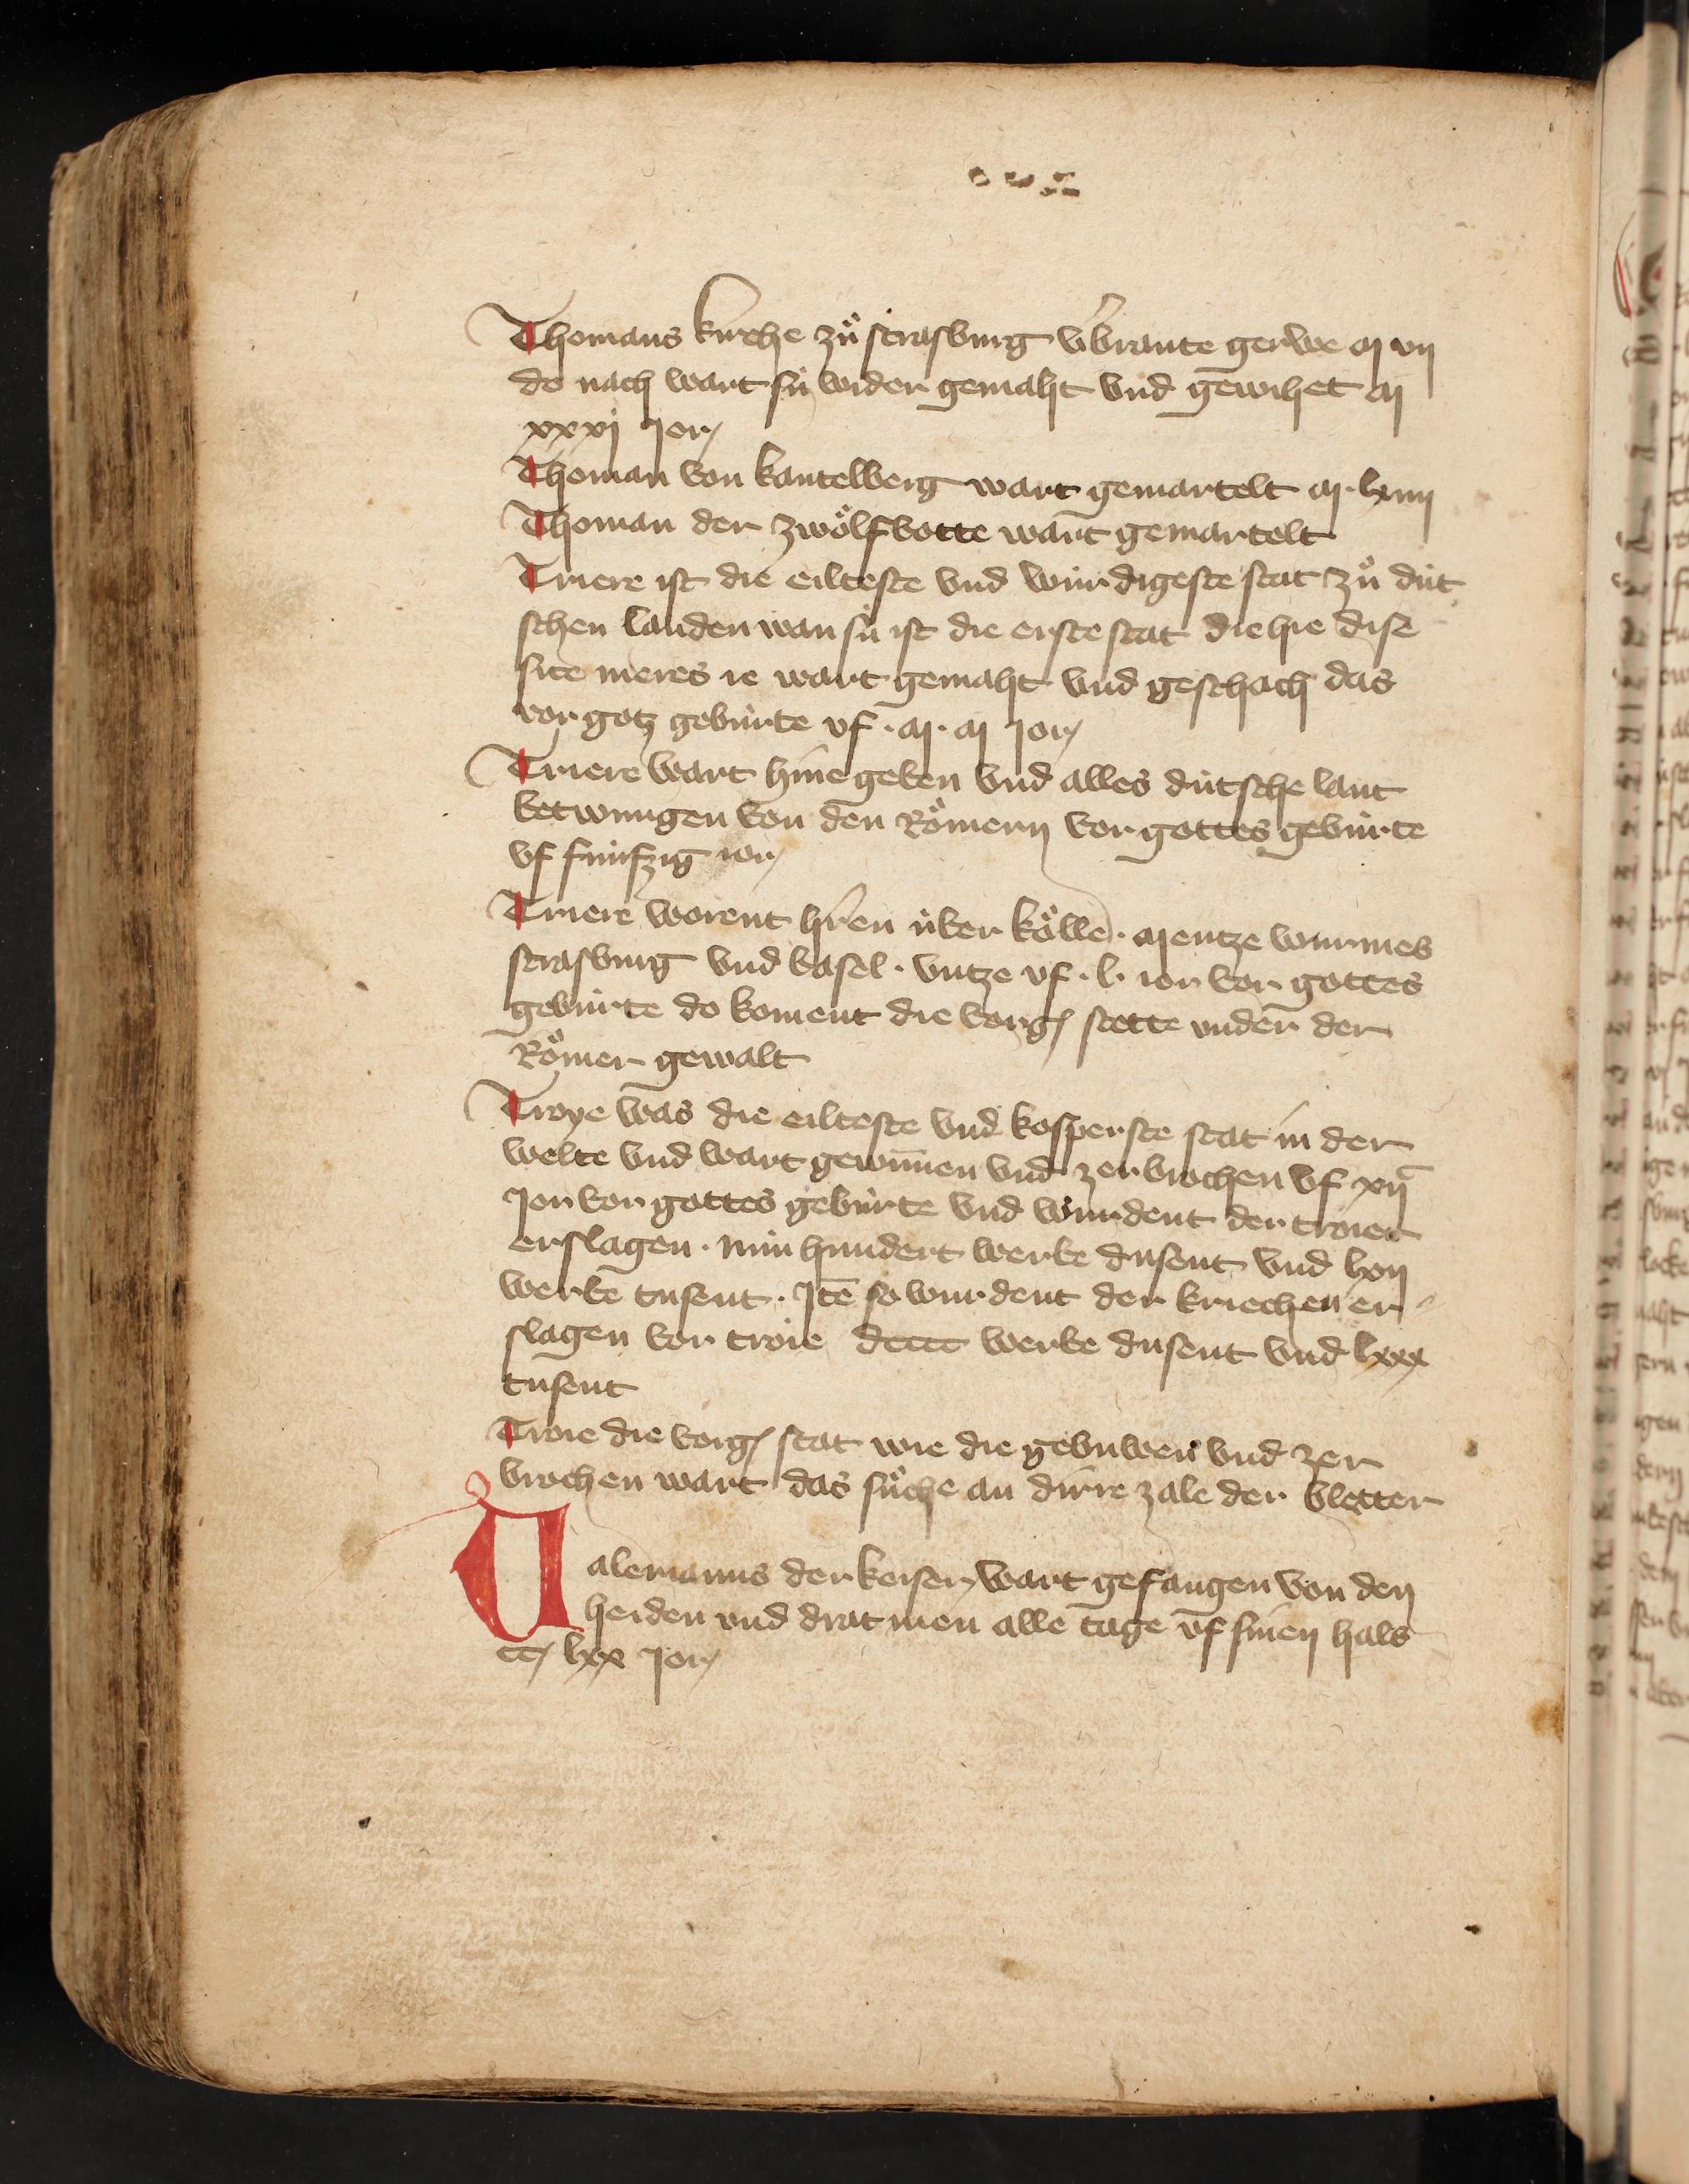 Thomans kirche zů strasburg v̉brante gerwe M vij
do nach wart sü wider gemaht vnd gewihet M
xxxj Jor
Thoman von kantelberg wart gemartelt M. lxiiij
Thoman der zwölfbotte wart gemartelt
Triere ist die eilteste vnd würdigeste stat zů düt
schen landen wan sü ist die erste stat die hie dise
site meres ie wart gemaht vnd geschach das
vor gotz gebürte vf . M . M Jor
Triere wart hine geben vnd alles dütsche lant
betwungen von den Römern vor gottes gebürte
vf fünfzig ior
Triere worent h̉ren über kölle . Mentze wurmes
strasburg vnd basel . vntze vf . l . ior vor gottes
gebürte do koment die vorg stette vnder der
Römer gewalt
Troye was die eilteste vnd kosperste stat in der
welte vnd wart gewun̄en vnd zerbrochen vf xijᶜ
Jor vor gottes gebürte vnd wurdent der troier
erslagen . nün hundert werbe dusent vnd lxvij
werbe tusent . Jtē so wurdent der kriechen er
slagen vor troie dccc werbe dusent vnd lxxx
tusent
Troie die vorg stat wie die gebuwen vnd zer
brochen wart das sůche an dirre zale der bletter
Ualerianus der keiser wart gefangen von den
heiden vnd drat men alle tage vf sinen hals
cc lxx Jor